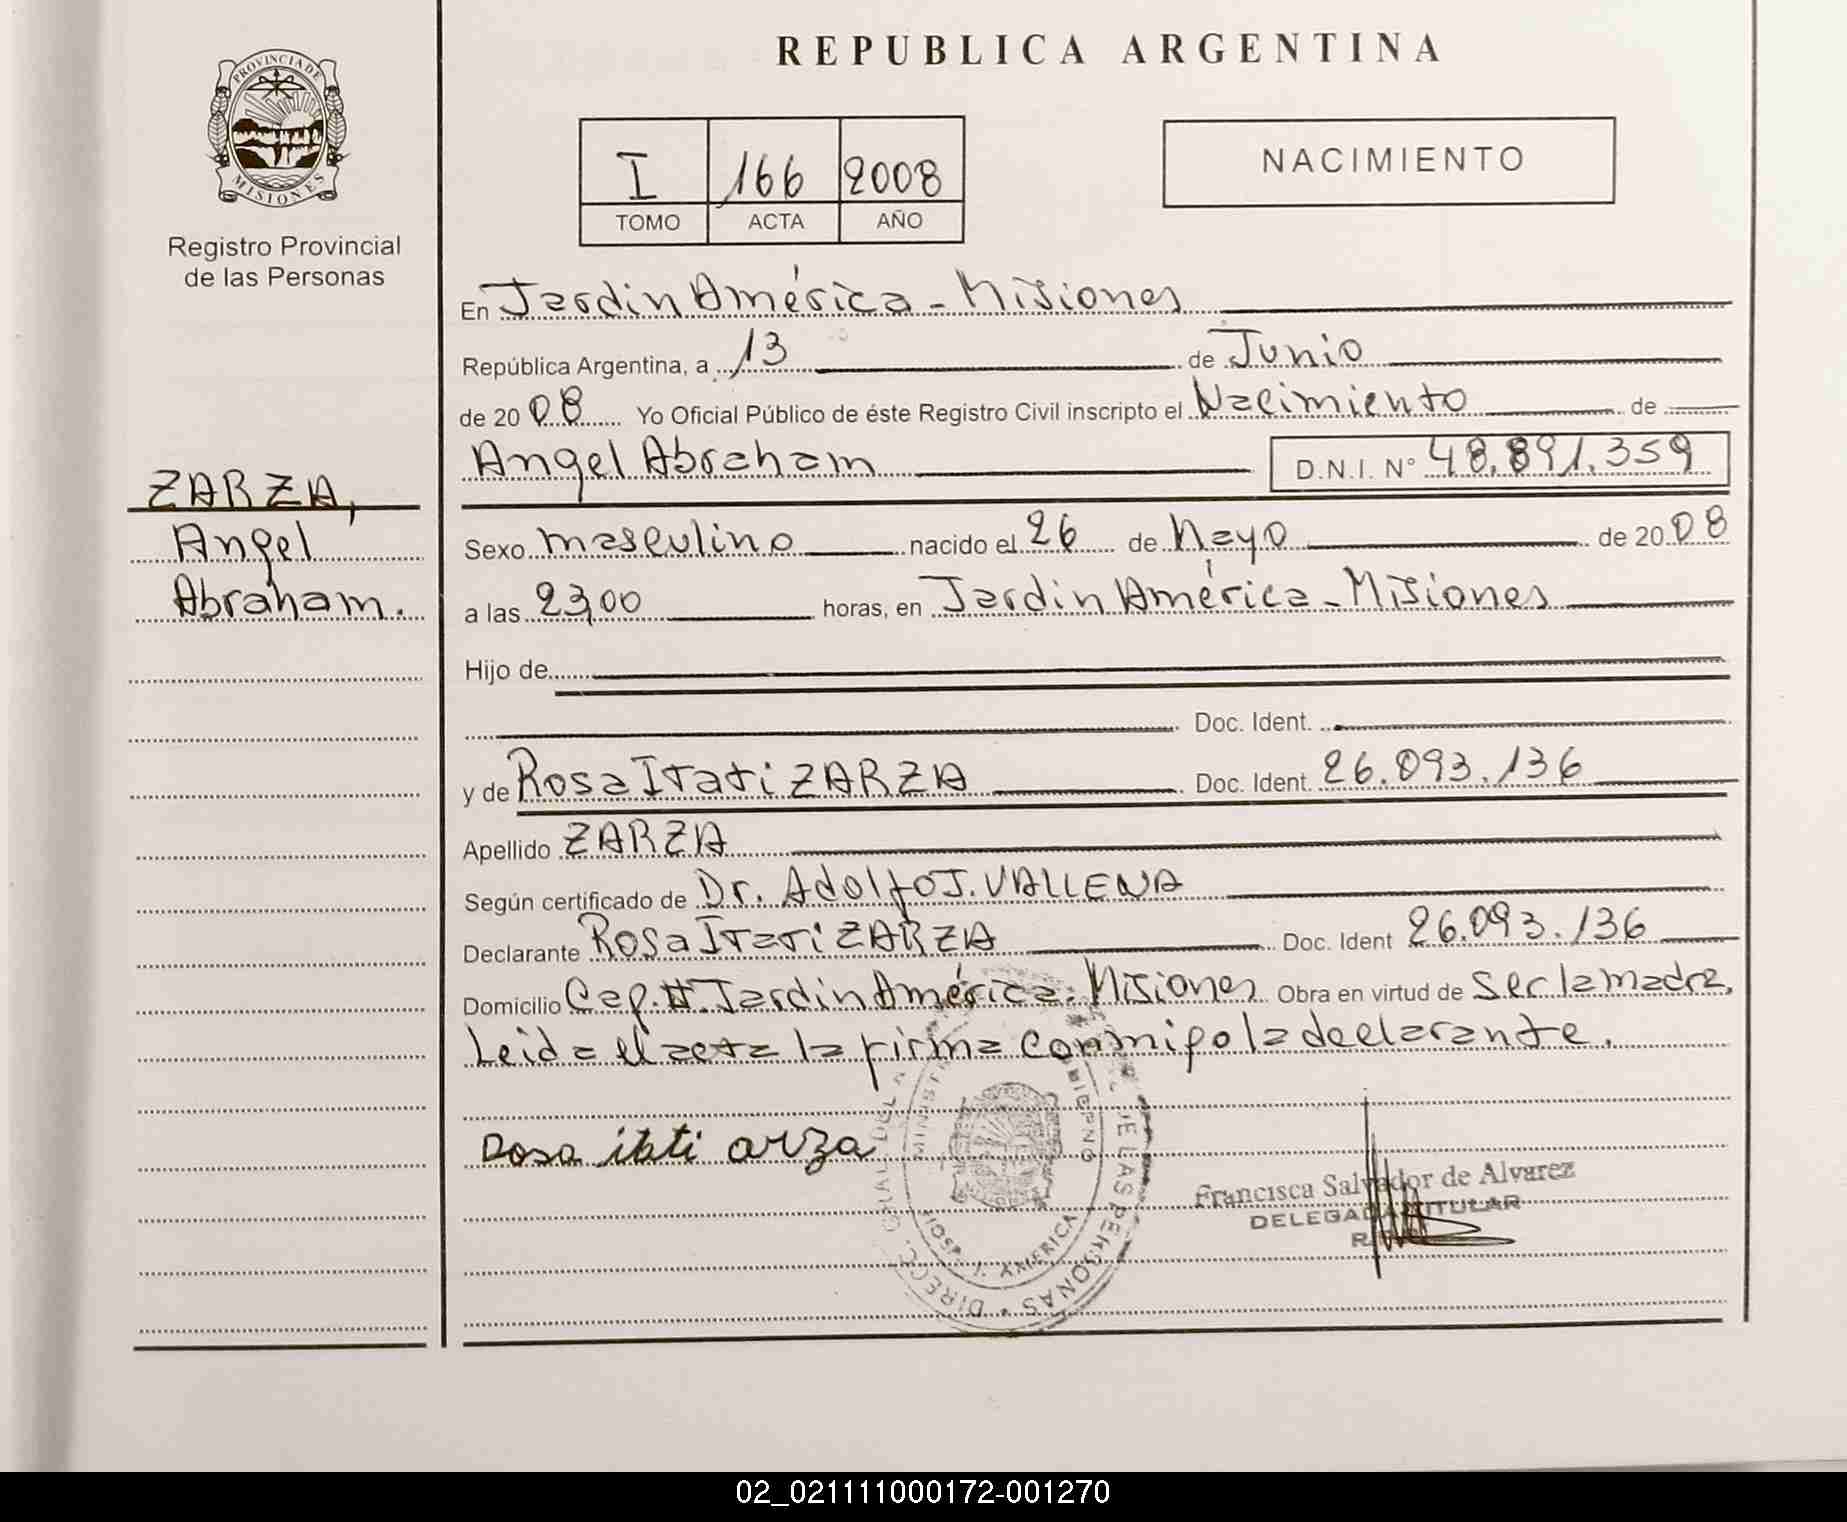 REPUBLICA ARGENTINA
PROVINCIA DE
MISIONES
Registro Provincial
de las Personas
I 166 2008
TOMO ACTA AÑO
NACIMIENTO
En Jardin América - Misiones
República Argentina, a 13 de Junio
de 2008 Yo Oficial Público de éste Registro Civil inscripto el Nacimiento de
Angel Abraham D.N.I. N° 48.891.359
ZARZA,
Angel
Abraham.
Sexo masculino nacido el 26 de Mayo de 2008
a las 23,00 horas, en Jardin América - Misiones
Hijo de
Doc. Ident.
y de Rosa Itati ZARZA Doc. Ident. 26.093.136
Apellido ZARZA
Según certificado de Dr. Adolfo J. VALLENA
Declarante Rosa Itati ZARZA Doc. Ident 26.093.136
Domicilio Cap. II. Jardin América. Misiones Obra en virtud de ser la madre.
Leida el acta la firma conmigo la declarante.
Rosa itati arza
DIRECC. GRAL DEL DE LAS PERSONAS
HOSP. J. AMERICA
Francisca Salvador de Alvarez
DELEGADA TITULAR
02_021111000172-001270